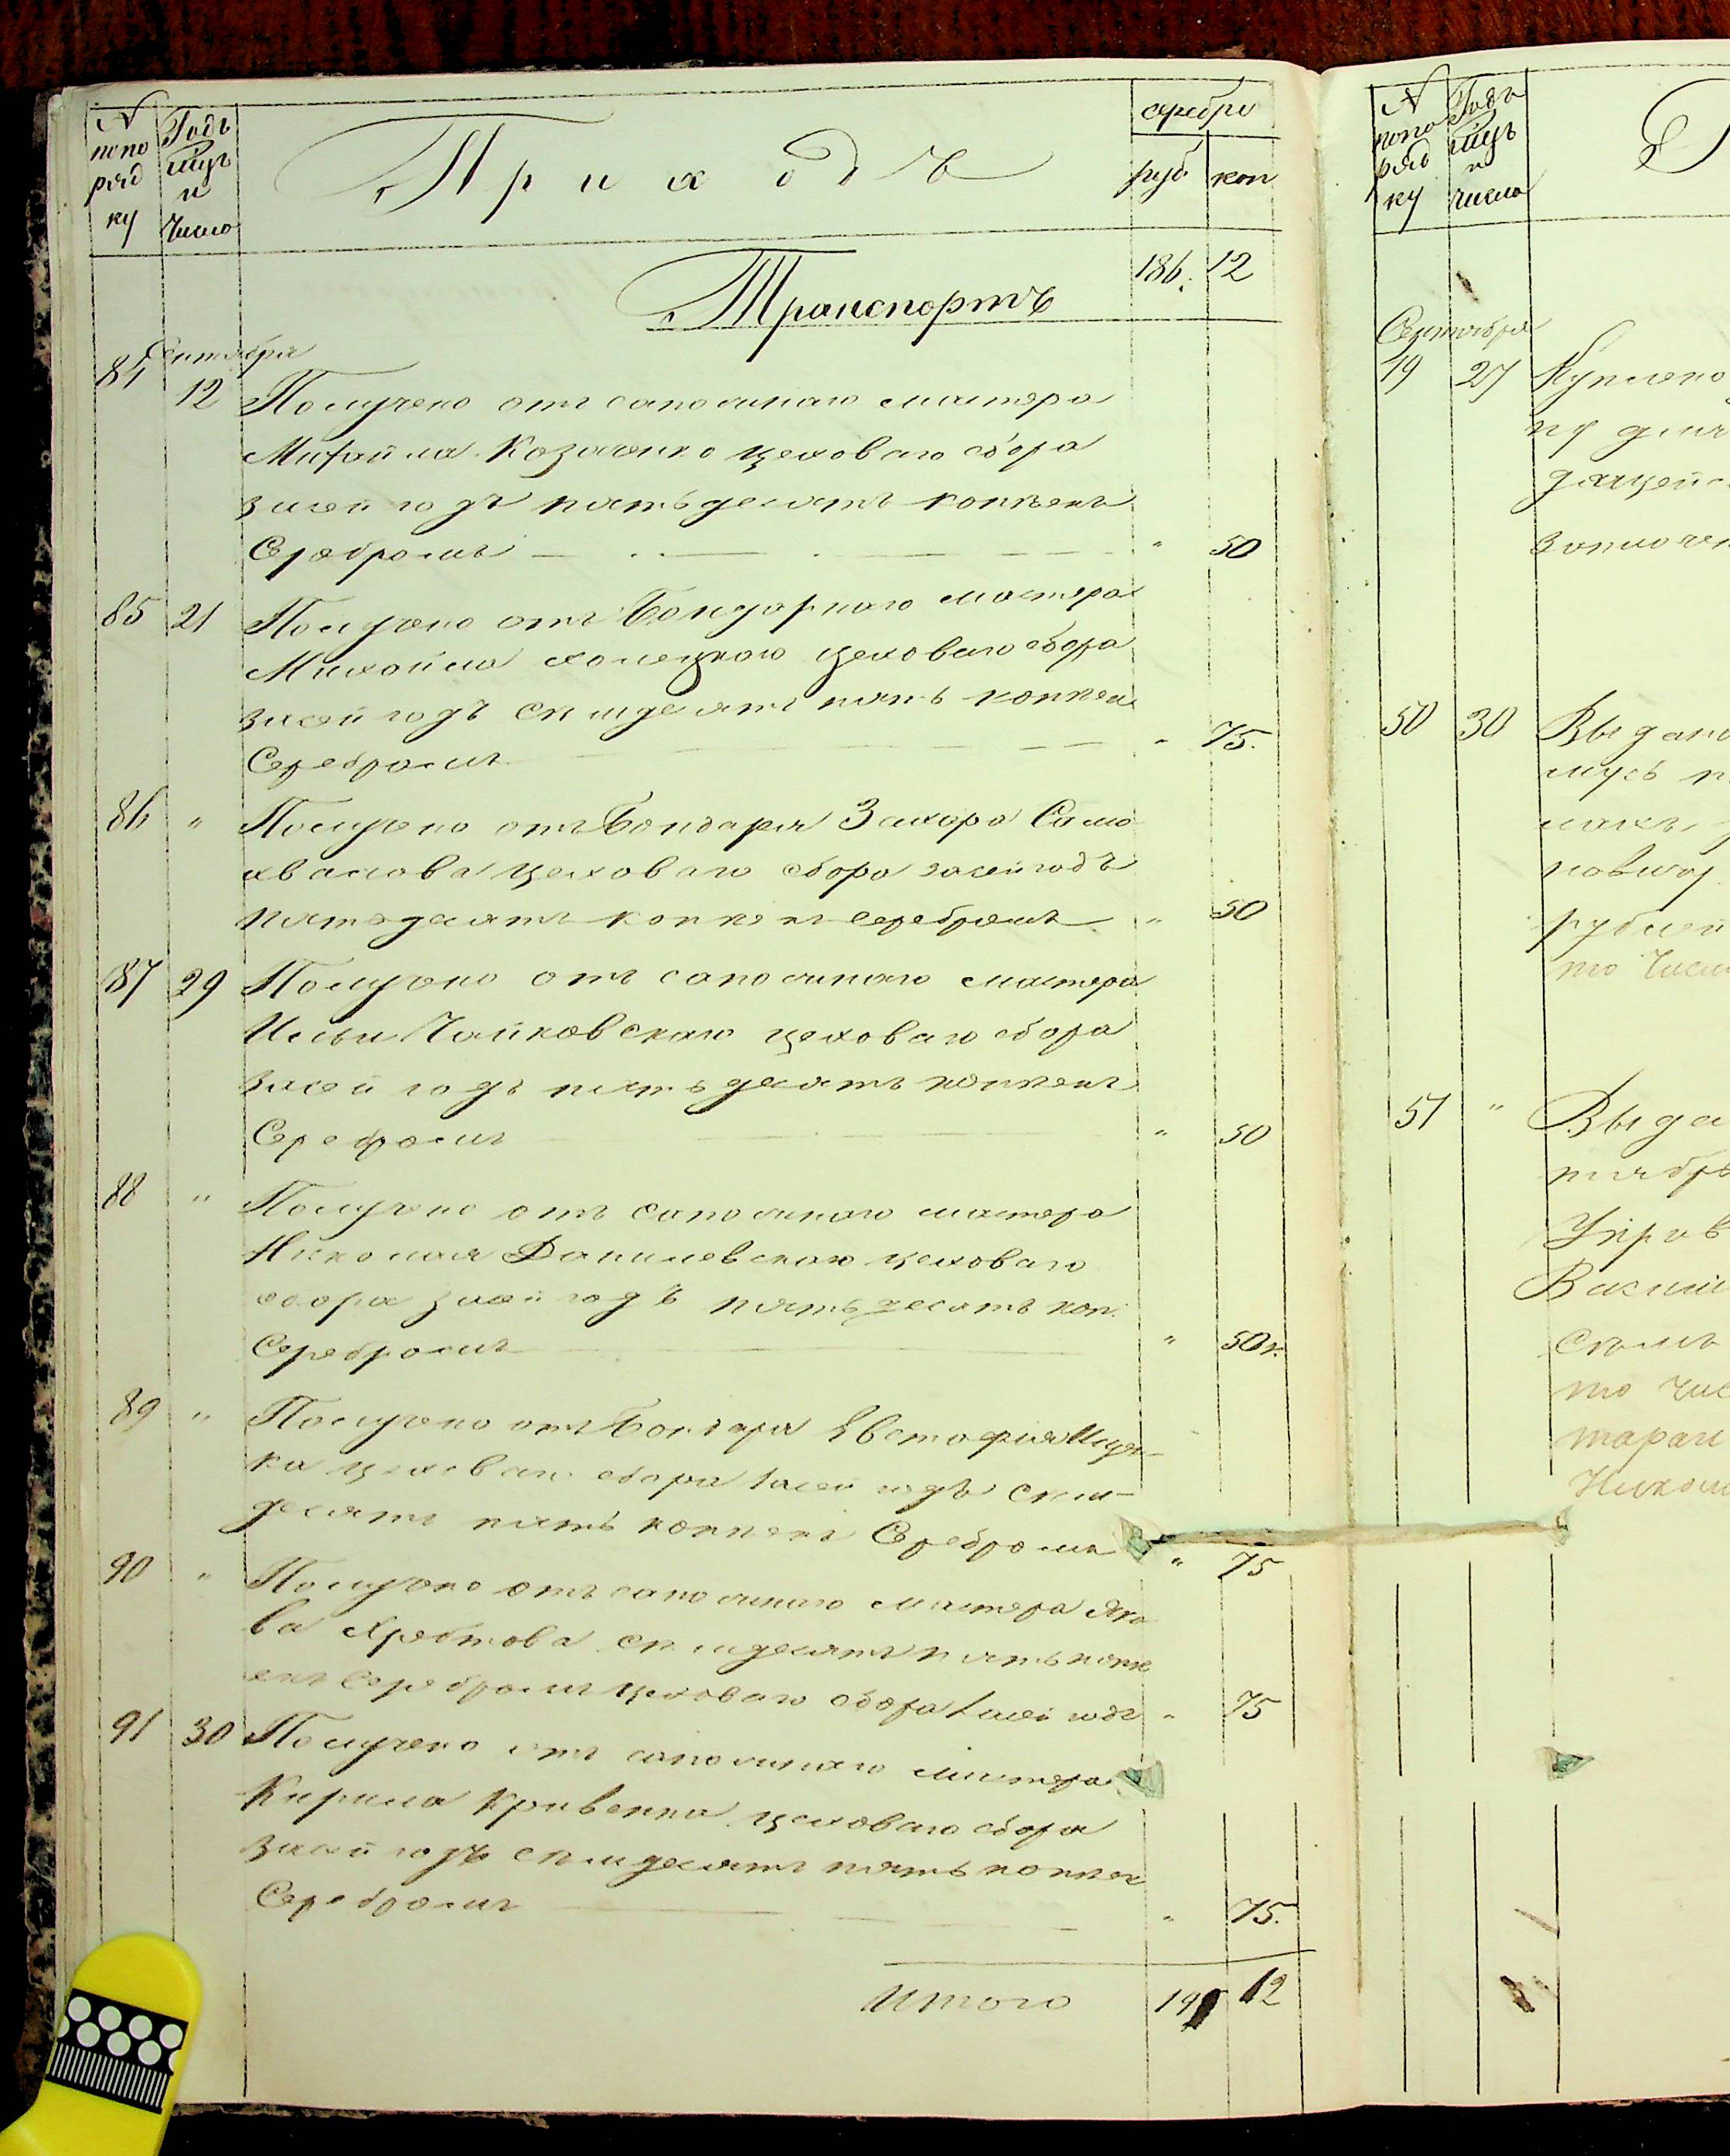 № Годъ серебро
попо Мцъ Приходъ руб. коп
ряд и
ку Число
Транспортъ 186. 12
Сентября
84 12 Получено отъ сапожнаго мастера
Михайла Козаченко цеховаго сбора
засей годъ пятьдесятъ копѣекъ
Серебромъ " 50
85 21 Получено отъ Бондарнаго мастера
Михайла цеховаго сбора
засей годъ семдесятъ пять копѣек
Серебромъ " 75.
86 " Получено отъ Бондаря Захара Само
хвалова цеховаго сбора засей годъ
пятьдесятъ копѣекъ серебромъ " 50
87 29 Получено отъ сапожнаго мастера
Ильи Чайковскаго цеховаго сбора
засей годъ пятьдесятъ копѣекъ
Серебромъ " 50
88 " Получено отъ сапожнаго мастера
Николая Данилевскаго цеховаго
сбора засей годъ пятьдесятъ коп.
Серебромъ " 50к.
89 " Получено отъ Бондаря Евстафия
ка цеховаго сбора засей годъ сем-
десятъ пять копѣекъ Серебромъ " 75
90 " Получено отъ сапожнаго мастера Яко
ва Хребтова семдесятъ пять копѣ
екъ Серебромъ цеховаго сбора засей годъ " 75
91 30 Получено отъ сапожнаго мастера
Кирила Кривенка цеховаго сбора
засей годъ семдесятъ пять копѣек
Серебромъ " 75.
Итого 191 12
№ Годъ
попо Мцъ
ряд и
ку число
Сентября
49 27 Куплено
50 30 Выдано
рублей
то Числ
51 " Выда
тября
Управ
Васили
то чис
Никола